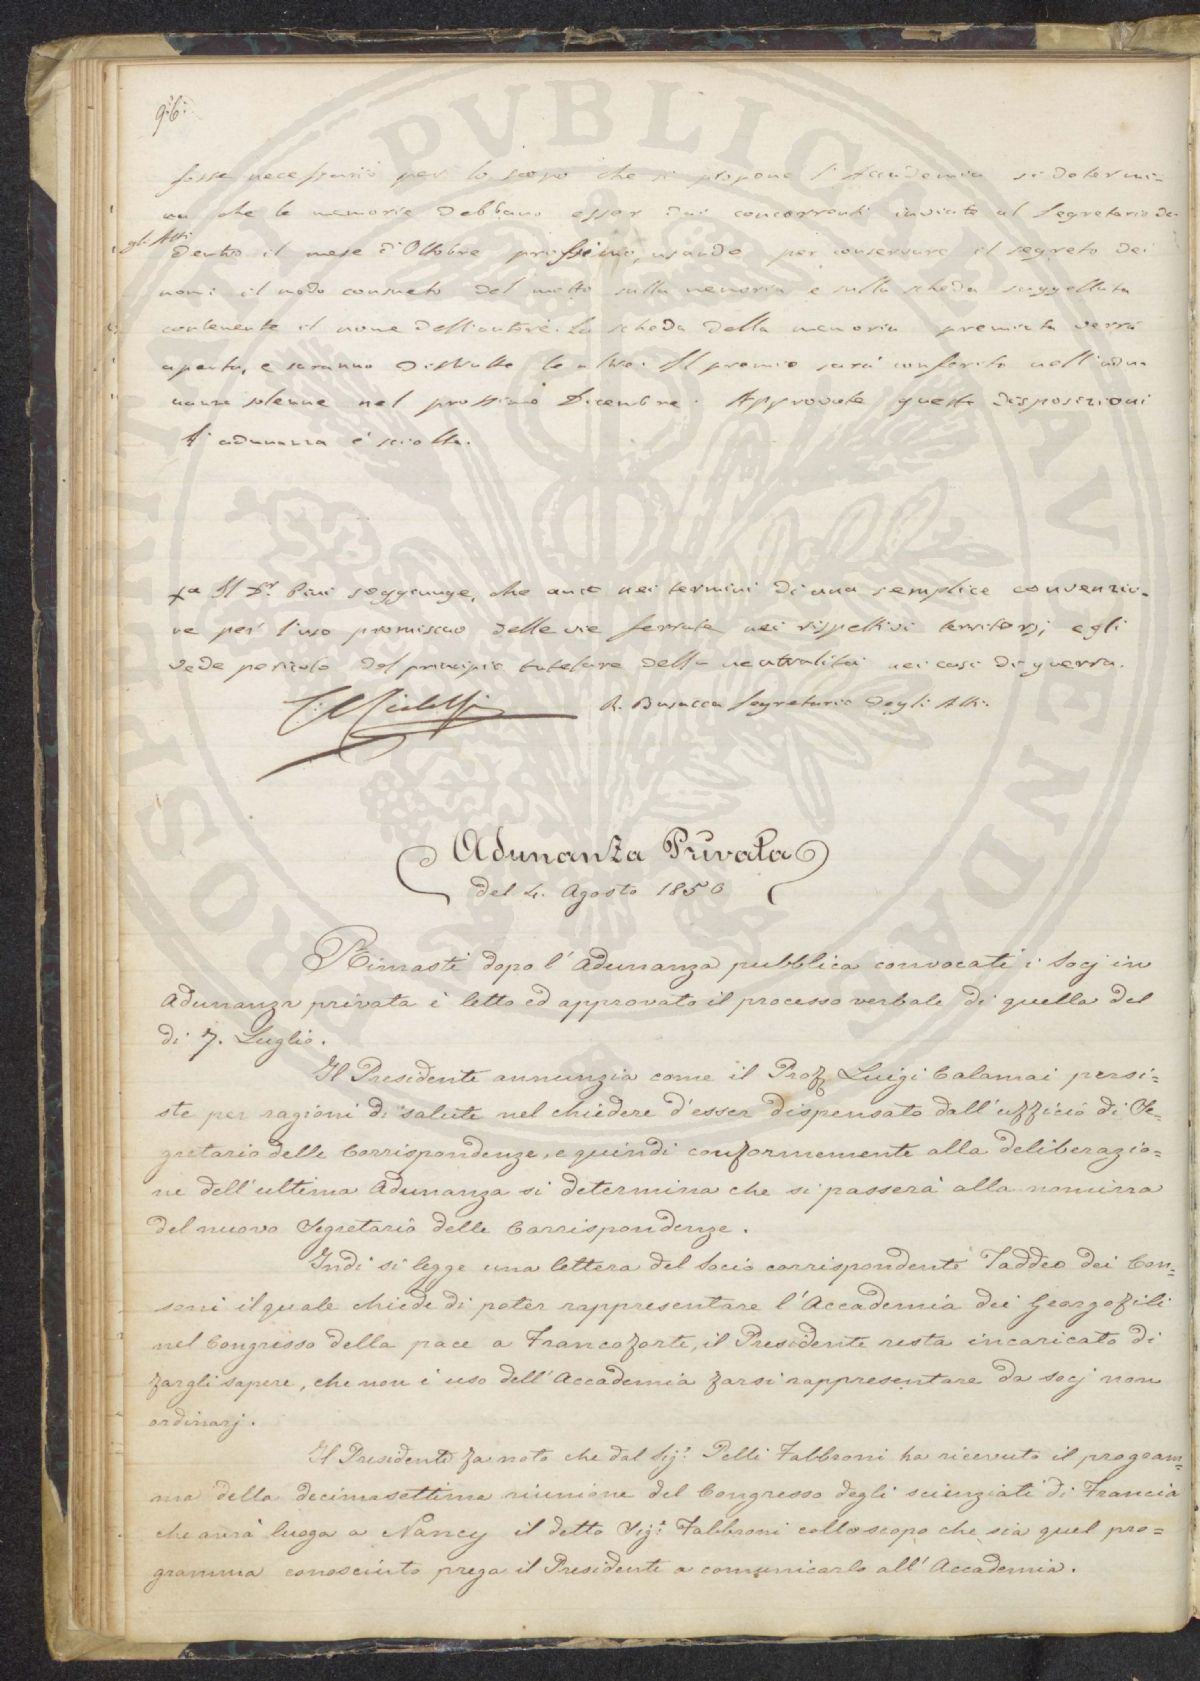 96:
fosse necessario per lo scopo che si propone l'Accademia si determi=
na che le memorie debbano esser dai concorrenti inviate al Segretario de
gli Atti
dentro il mese d'Ottobre prossimo, usando per conservare il segreto dei
nomi il modo consueto del motto sulla memoria e sulla scheda suggellata
contenente il nome dell'autore. La scheda della memoria premiata verrà
aperta, e saranno distrutte le altre. Il premio sarà conferito nell'adu
nanza solenne nel prossimo Dicembre. Approvate queste disposizioni
l'adunanza è sciolta.
Il Dr. Pini soggiunge, che anco nei termini di una semplice convenzio=
ne per l'uso promiscuo delle vie ferrate nei rispettivi territorj, egli
vede pericolo del principio tutelare della neutralità nei casi di guerra.
R. Busacca Segretario degli Atti.
Adunanza Privata
del 4. Agosto 1850
Rimasti dopo l'Adunanza pubblica convocati i Socj in
Adunanza privata è letto ed approvato il processo verbale di quella del
di 7. Luglio.
Il Presidente annunzia come il Prof. Luigi Calamai persi=
ste per ragioni di salute nel chiedere d'esser dispensato dall'uffició di Se=
gretario delle Corrispondenze, e quindi conformemente alla deliberazio=
ne dell'ultima Adunanza si determina che si passerà alla nomina
del nuovo Segretario delle Corrispondenze.
Indi si legge una lettera del Socio corrispondente Taddeo dei Con=
soni il quale chiede di poter rappresentare l'Accademia dei Georgofili
nel Congresso della pace a Francoforte, il Presidente resta incaricato di
fargli sapere, che non è uso dell'Accademia farsi rappresentare da socj non
ordinarj.
Il Presidente fa noto che dal Sig.r Pelli Fabbroni ha ricevuto il program=
ma della decimasettima riunione del Congresso degli scienziati di Francia
che avrà luogo a Nancy il detto Sig.r Fabbroni collo scopo che sia quel pro=
gramma conosciuto prega il Presidente a comunicarlo all'Accademia.
PROSPERITATI PUBLICAE AUGENDAE